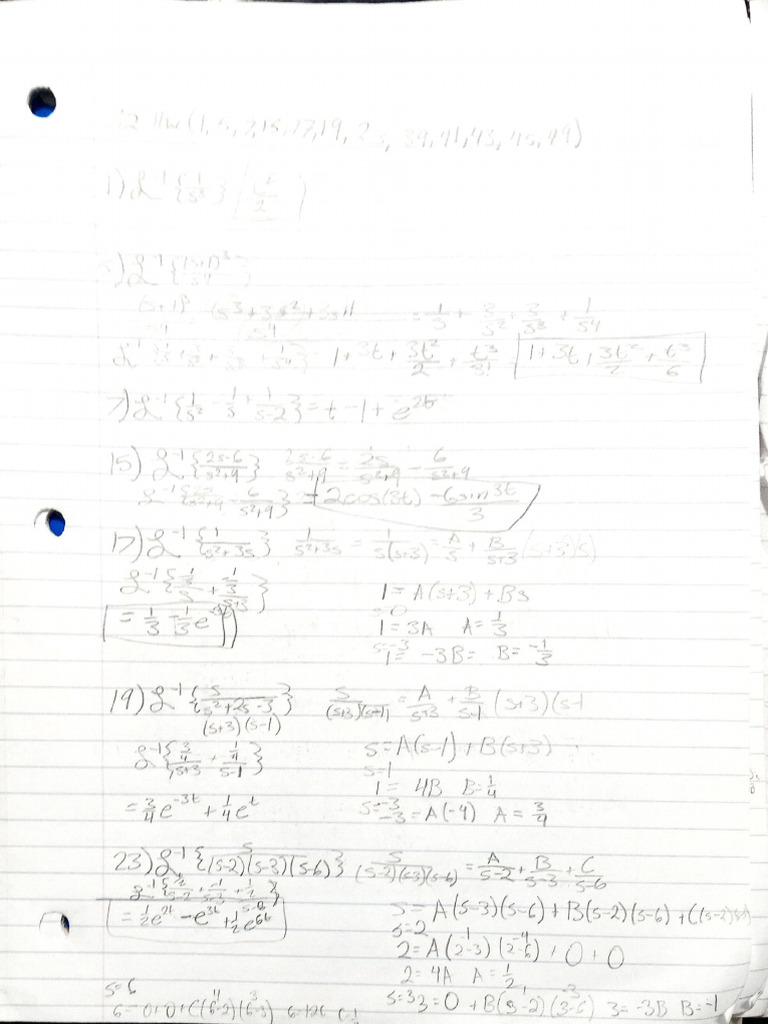 Hw (1, 5, 7, 15, 17, 19, 23, 39, 41, 43, 45, 49)
1) ℒ⁻¹{1/s³} t²/2
5) ℒ⁻¹{(s+1)³/s⁴}
(s+1)³/s⁴ = 1/s + 3/s² + 3/s³ + 1/s⁴
1+3t+3t²/2+t³/3! 1+3t+3t²/2+t³/6
7) ℒ⁻¹{1/s² - 1/s + 1/(s-2)} = t - 1 + e^(2t)
15) ℒ⁻¹{(2s-6)/(s²+9)} (2s-6)/(s²+9) = 2s/(s²+9) - 6/(s²+9)
ℒ⁻¹{2s/(s²+9) - 6/(s²+9)} = 2cos(3t) - 6sin3t/3
17) ℒ⁻¹{1/(s²+3s)} 1/(s²+3s) = 1/(s(s+3)) = A/s + B/(s+3) (s+3)(s)
1 = A(s+3) + Bs
s=0
= 1/3 - 1/3 e 1 = 3A A = 1/3
s=-3
1 = -3B = B = -1/3
19) ℒ⁻¹{s/(s²+2s-3)} s/((s+3)(s-1)) = A/(s+3) + B/(s-1) (s+3)(s-1
(s+3)(s-1)
ℒ⁻¹{(3/4)/(s+3) + (1/4)/(s-1)} s = A(s-1) + B(s+3)
s=1
1 = 4B B = 1/4
= 3/4 e^(-3t) + 1/4 e^t s=-3 -3 = A(-4) A = 3/4
23) ℒ⁻¹{s/((s-2)(s-3)(s-6))} s/((s-2)(s-3)(s-6)) = A/(s-2) + B/(s-3) + C/(s-6)
ℒ⁻¹{(1/2)/(s-2) + -1/(s-3) + (1/2)/(s-6)}
= 1/2 e^(2t) - e^(3t) + 1/2 e^(6t) s = A(s-3)(s-6) + B(s-2)(s-6) + C(s-2)(s-3)
s=2
2 = A(2-3)(2-6) + 0 + 0
2 = 4A A = 1/2
s=6 s=3 3 = 0 + B(3-2)(3-6) 3 = -3B B = -1
6 = 0+0+C(6-2)(6-3) 6=12C